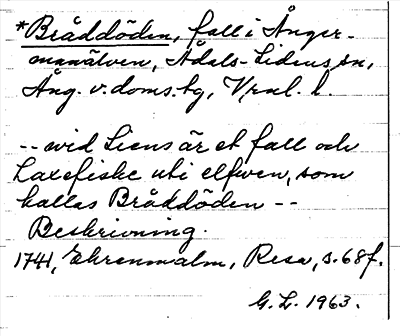 *Bråddöden, fall i Ånger-
manälven, Ådals-Lidens sn,
Ång. v. doms. tg, Vrnl. l.
-- wid Liens är et fall och
Laxefiske uti elfwen, som
kallas Bråddöden --
Beskrivning.
1741, Ehrenmalm, Resa, s. 68f.
G. L. 1963.